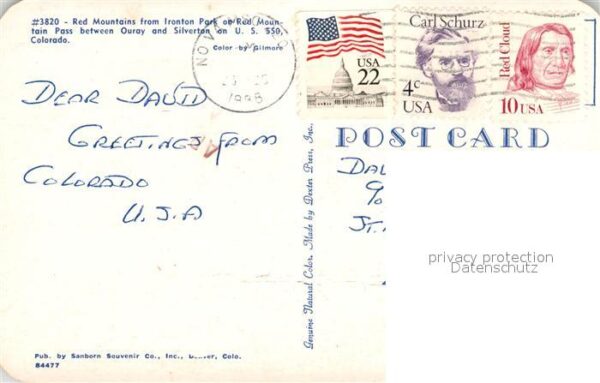 #3820 - Red Mountains from Ironton Park on Red Moun-
tain Pass between Ouray and Silverton on U. S. 550,
Colorado.
Color by Gilmore
1995
USA
22
Carl Schurz
4c
USA
Red Cloud
10 USA
DEAR DAVID
GREETINGS FROM
COLORADO
U.S.A
POST CARD
ST.
privacy protection
Datenschutz
Genuine Natural Color. Made by Dexter Press, Inc.
Pub. by Sanborn Souvenir Co., Inc., Denver, Colo.
84477